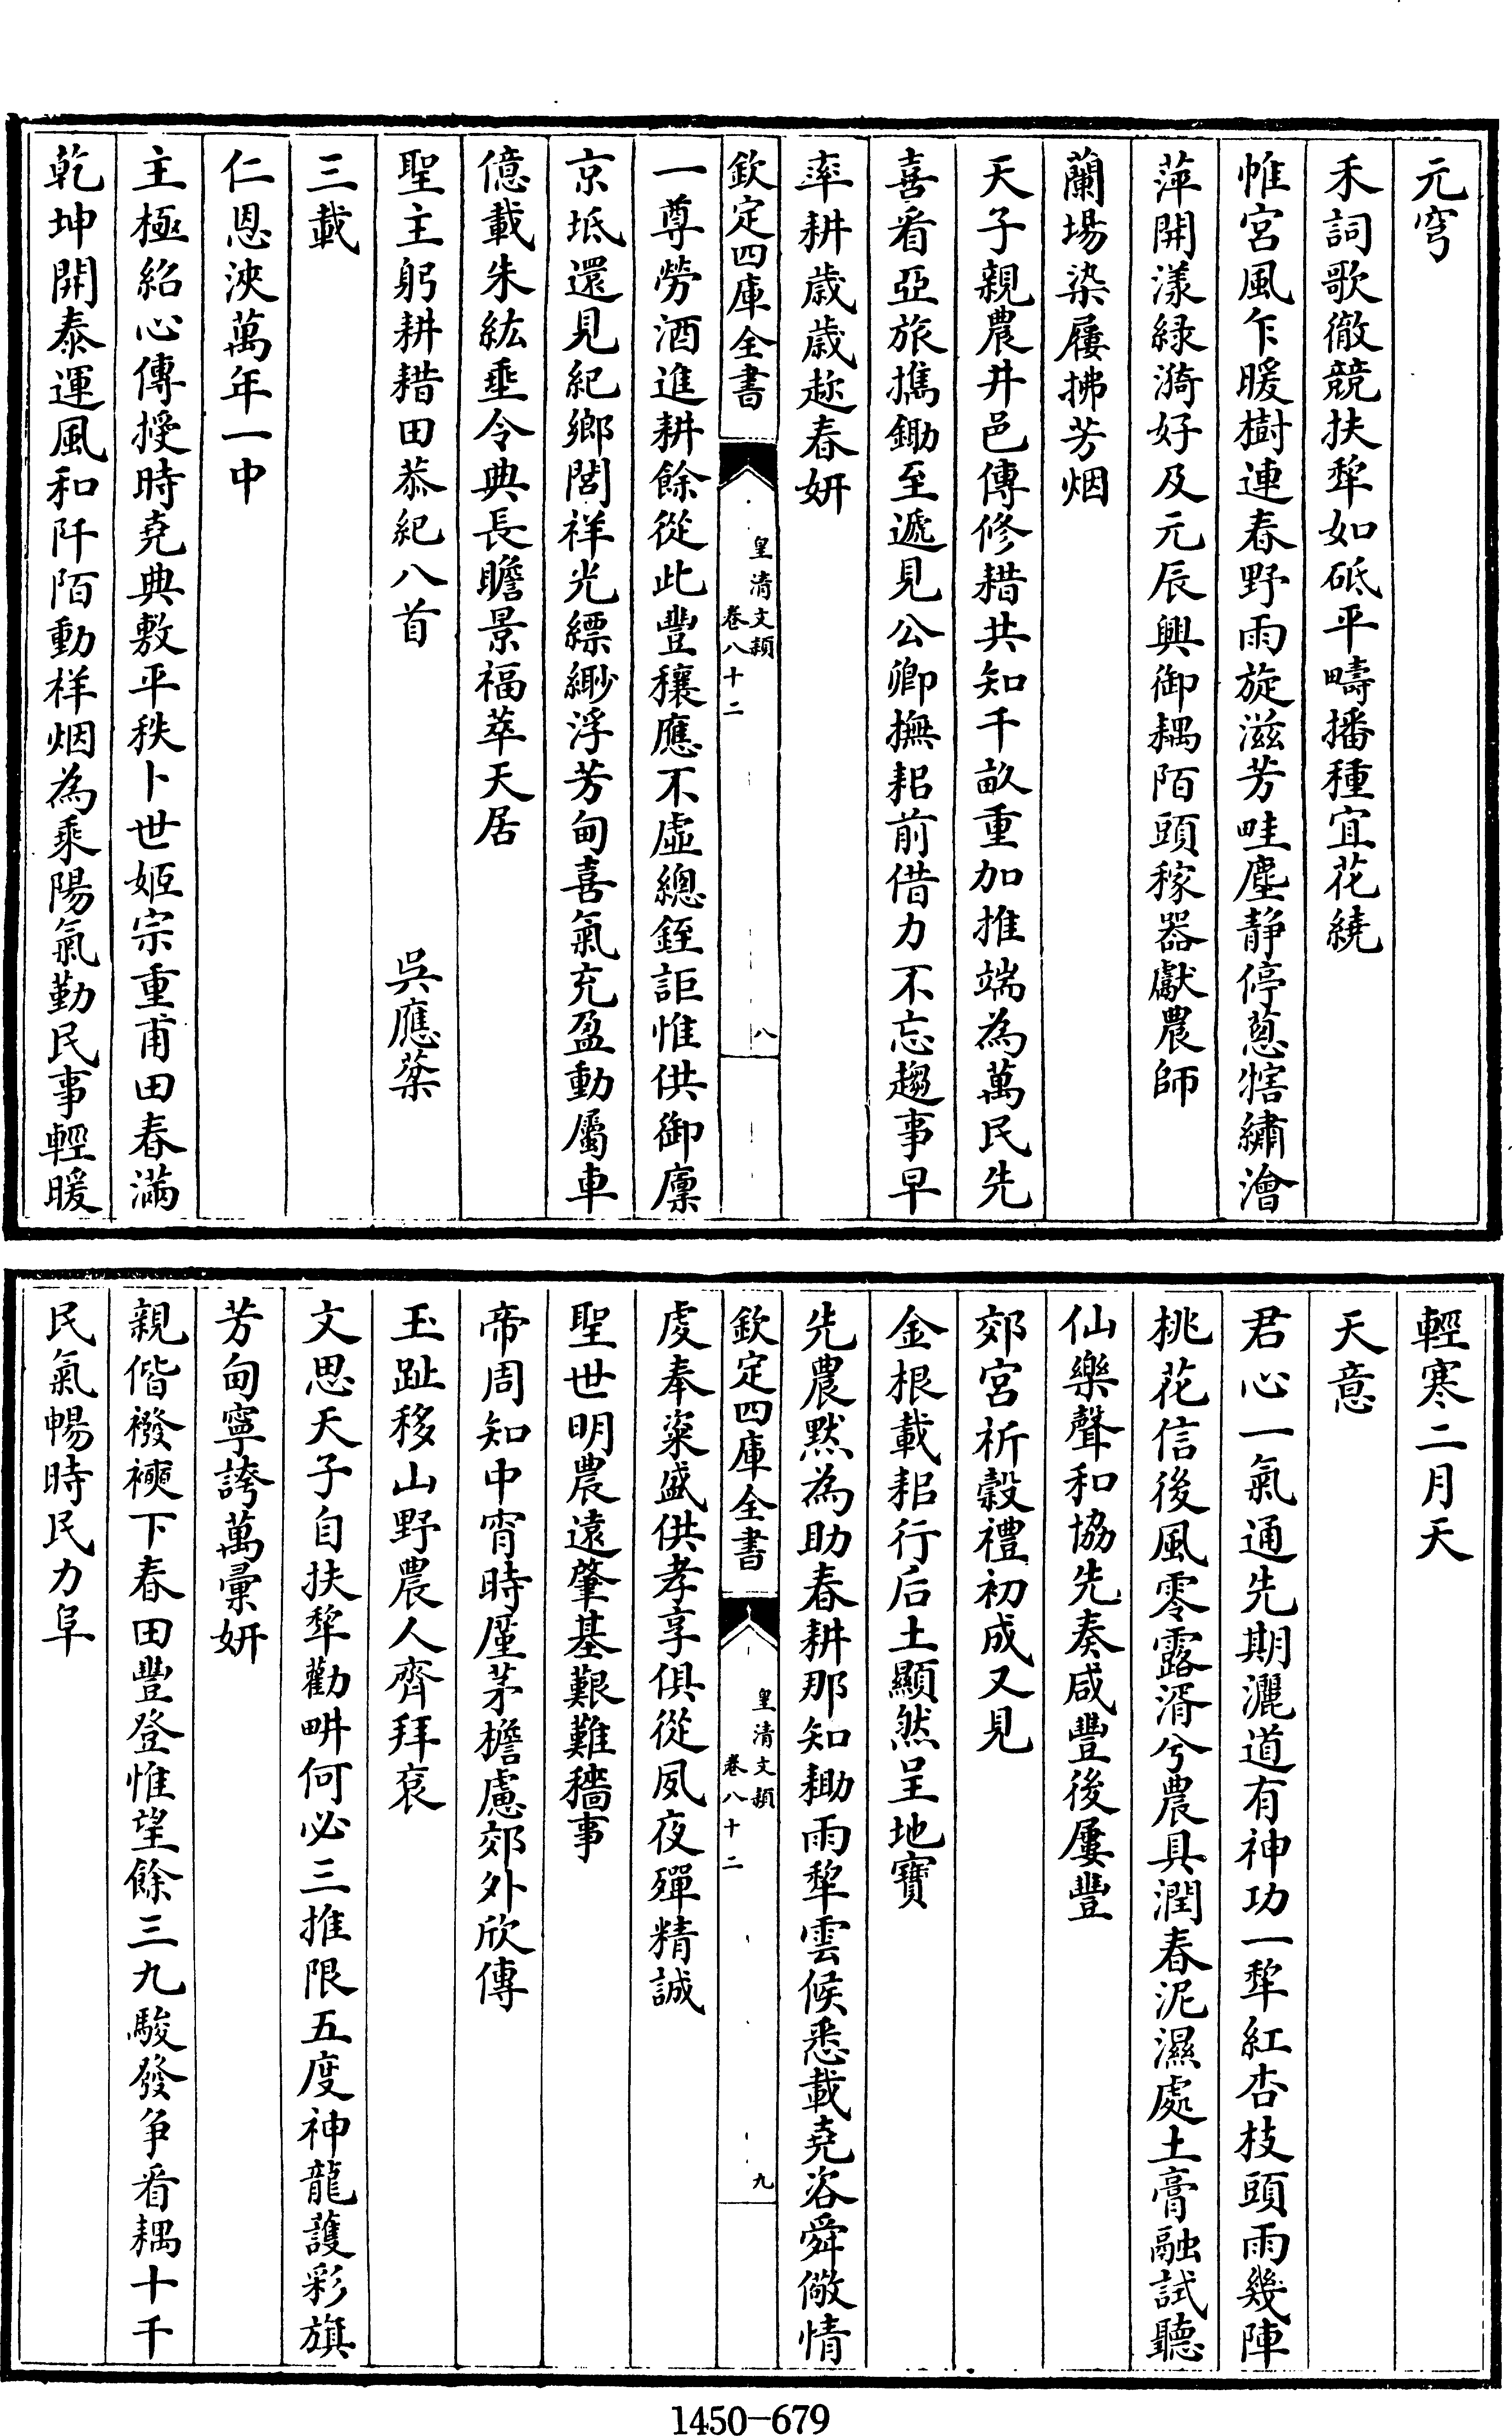 元穹
禾詞歌徹競扶犂如砥平疇播種宜花繞
帷宮風乍暖樹連春野雨旋滋芳畦塵静停蔥犗繡澮
萍開漾緑漪好及元辰興御耦陌頭稼器獻農師
蘭場染屨拂芳烟
天子親農井邑傳修耤共知千畝重加推端為萬民先
喜看亞旅攜鋤至遞見公卿撫耜前借力不忘趨事早
率耕歲歲趂春妍
欽定四庫全書
皇清文穎
卷八十二
八
一尊勞酒進耕餘從此豐穰應不虛總銍詎惟供御廩
京坻還見紀鄉閭祥光縹緲浮芳甸喜氣充盈動屬車
億載朱紘垂令典長瞻景福萃天居
聖主躬耕耤田恭紀八首 吳應棻
三載
仁恩浹萬年一中
主極紹心傳授時堯典敷平秩卜世姬宗重甫田春滿
乾坤開泰運風和阡陌動祥烟為乘陽氣勤民事輕暖
輕寒二月天
天意
君心一氣通先期灑道有神功一犂紅杏枝頭雨幾陣
桃花信後風零露湑兮農具潤春泥濕處土膏融試聽
仙樂聲和協先奏咸豐後屢豐
郊宮祈穀禮初成又見
金根載耜行后土顯然呈地寶
先農默為助春耕那知耡雨犂雲候悉載堯咨舜儆情
欽定四庫全書
皇清文穎
卷八十二
九
虔奉粢盛供孝享俱從夙夜殫精誠
聖世明農遠肇基艱難穡事
帝周知中宵時廑茅檐慮郊外欣傳
玉趾移山野農人齊拜衮
文思天子自扶犂勸畊何必三推限五度神龍護彩旗
芳甸寧誇萬彙妍
親偕襏襫下春田豐登惟望餘三九駿發争看耦十千
民氣暢時民力阜
1450—679